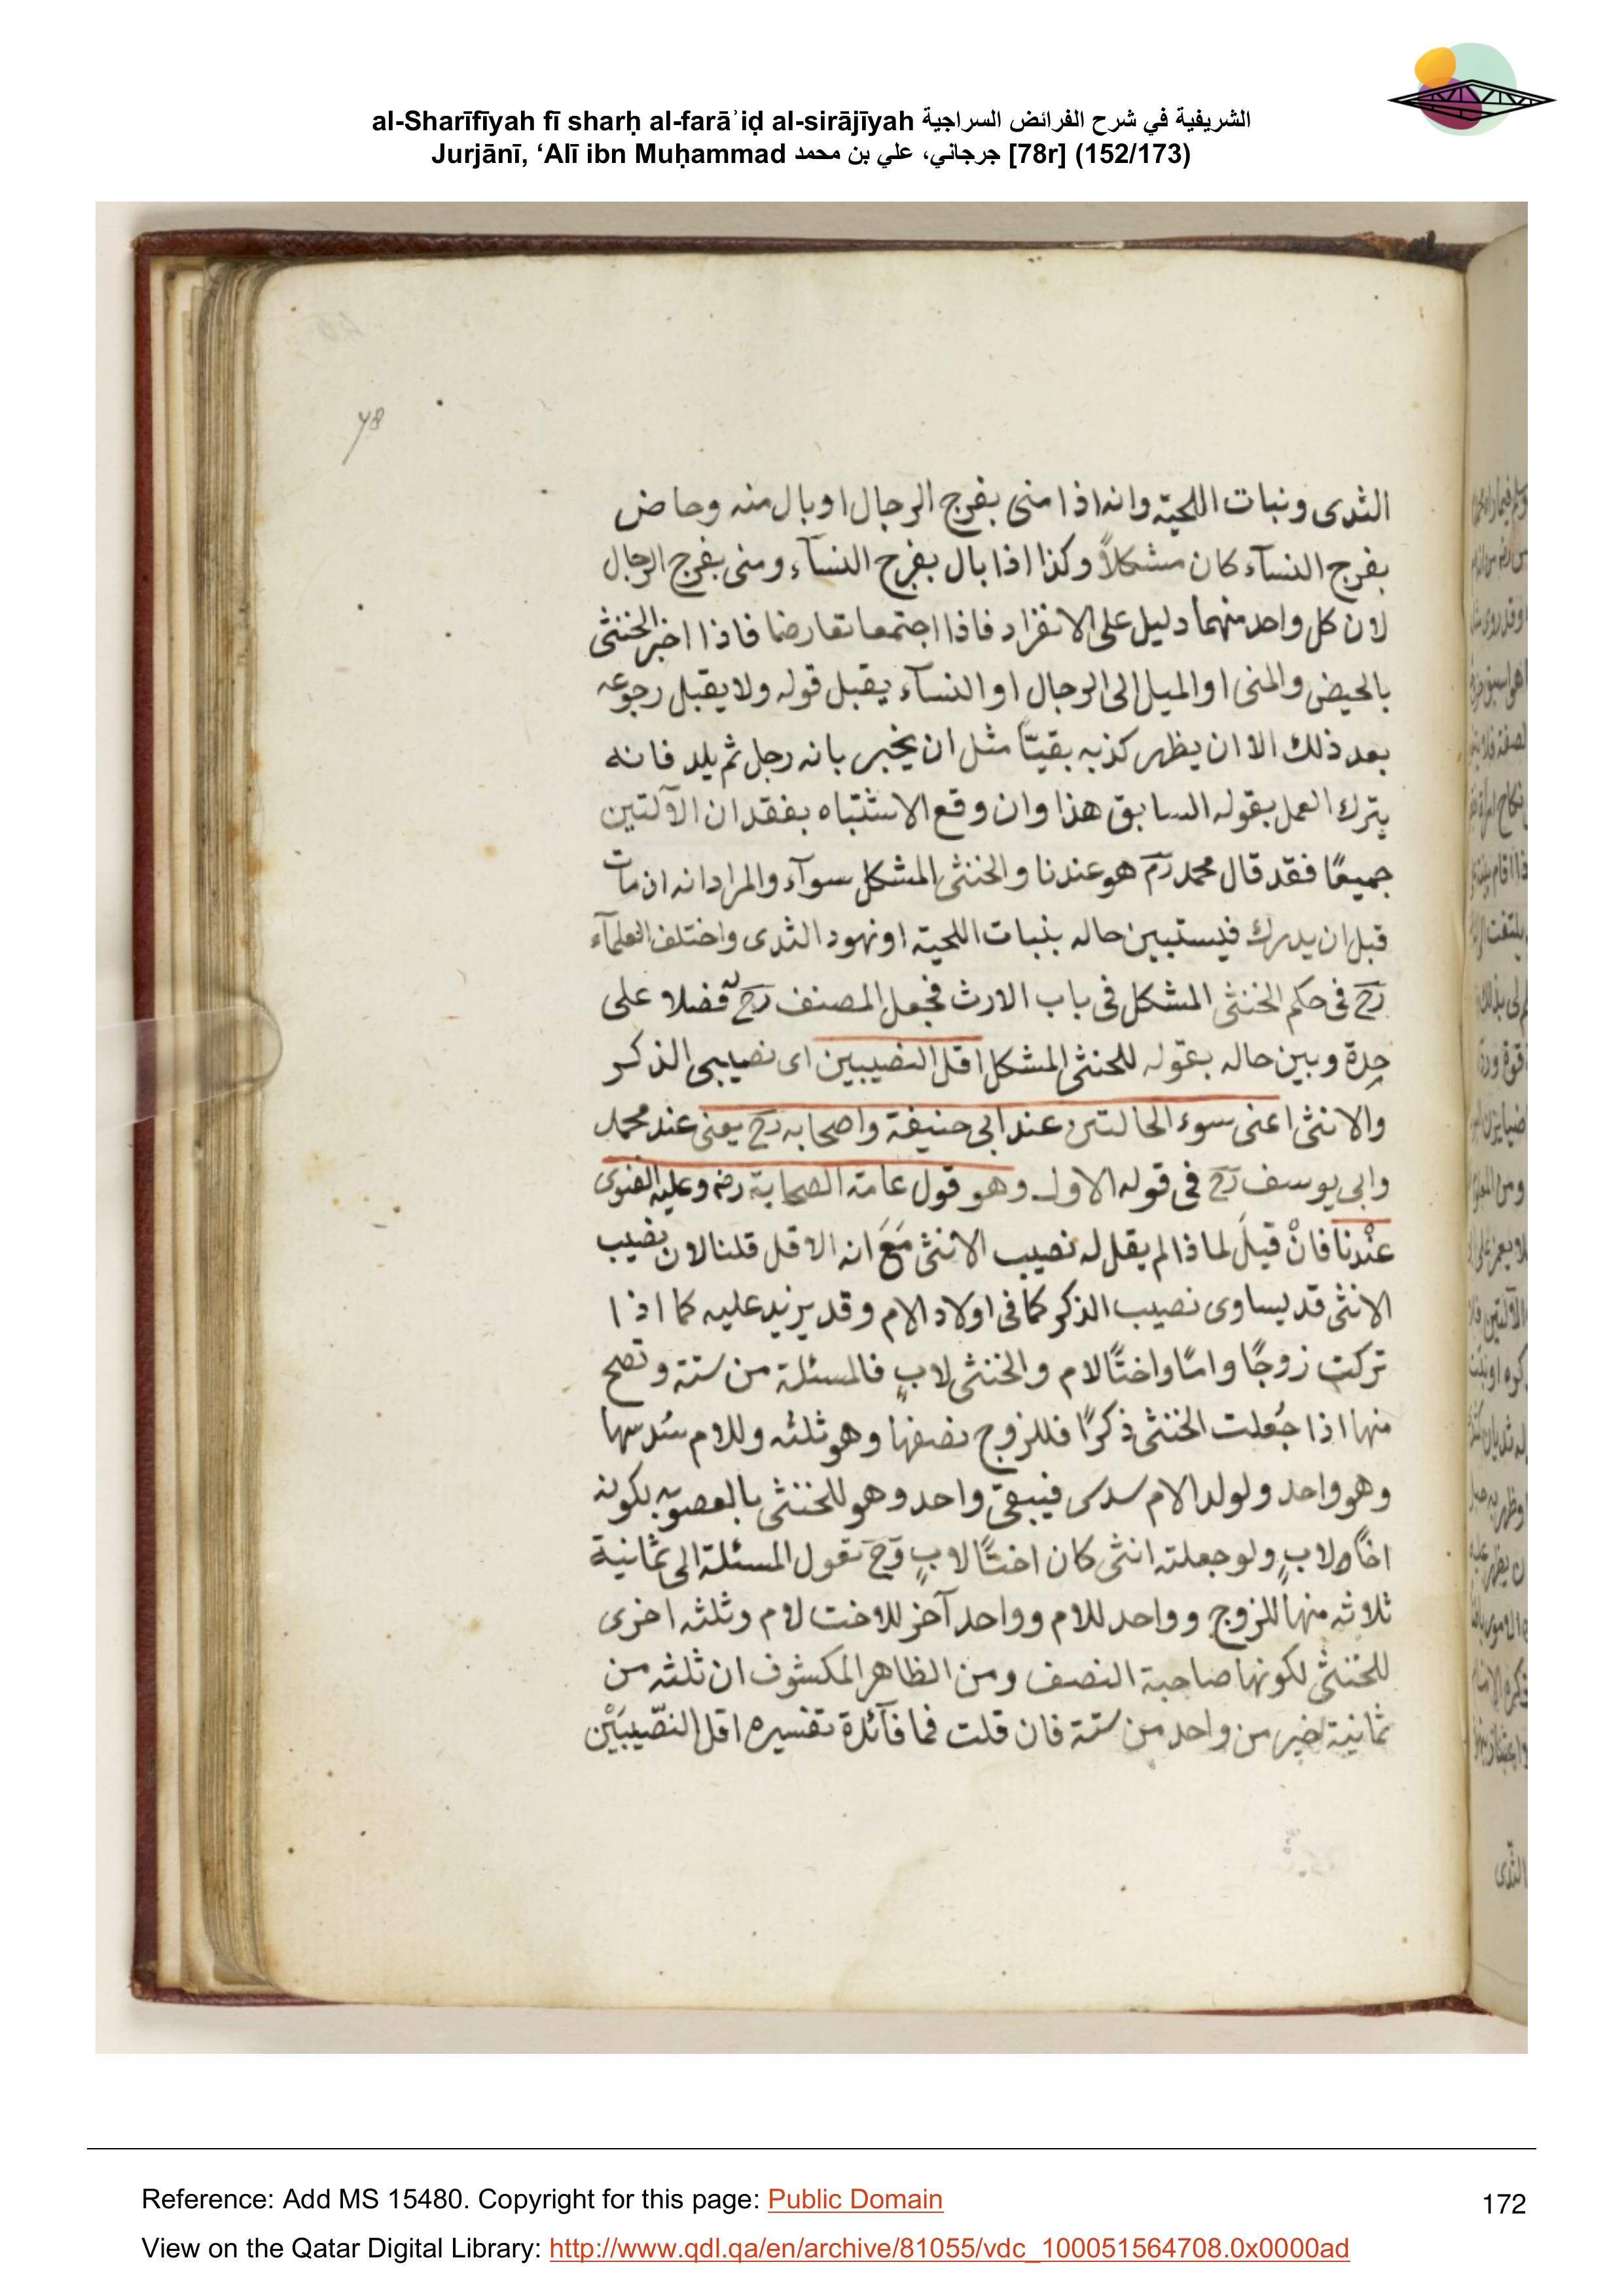 al-Sharīfīyah fī sharḥ al-farāʾiḍ al-sirājīyah الشريفية في شرح الفرائض السراجية
Jurjānī, ‘Alī ibn Muḥammad جرجاني، علي بن محمد [78r] (152/173)
78
الثدى ونبات اللحية وانه اذا منى بفرج الرجال او بال منه وحاض
بفرج النسآء كان مشكلاً وكذا اذا بال بفرج النسآء ومنى بفرج الرجال
لان كل واحد منهما دليل على الانفراد فاذا اجتمعا تعارضا فاذا اخبر الخنثى
بالحيض والمنى او الميل الى الرجال او النسآء يقبل قوله ولا يقبل رجوعه
بعد ذلك الا ان يظهر كذبه يقينًا مثل ان يخبر بانه رجل ثم يلد فانه
يترك العمل بقوله السابق هذا وان وقع الاشتباه بفقدان الآلتين
جميعًا فقد قال محمد رح هو عندنا والخنثى المشكل سوآء والمراد انه ان مات
قبل ان يدرك فيستبين حاله بنبات اللحية او نهود الثدى واختلف العلمآء
رح فى حكم الخنثى المشكل فى باب الارث فجعل المصنف رح له فضلا على
حِدة وبين حاله بقوله للخنثى المشكل اقل النصيبين اى نصيبى الذكر
والانثى اعنى سوء الحالتين عند ابى حنيفة واصحابه رح يعنى عند محمد
وابى يوسف رح فى قوله الاول وهو قول عامة الصحابة رض وعليه الفتوى
عنْدنا فانْ قيلَ لماذا لم يقل له نصيب الانثى مَعَ انه الاقل قلنا لان نصيب
الانثى قد يساوى نصيب الذكر كما فى اولاد الام وقد يزيد عليه كما اذا
تركت زوجًا وامًا واختًا لام والخنثى لابٍ فالمسئلة من ستة وتصح
منها اذا جُعلت الخنثى ذكرًا فللزوج نصفها وهو ثلثه وللام سُدسها
وهو واحد ولولد الام سدس فيبقى واحد وهو للخنثى بالعصوبه بكونه
اخًا لابٍ ولو جعلته انثى كان اختًا لابٍ وح تعول المسئلة الى ثمانية
ثلاثه منها للزوج وواحد للام وواحد آخر للاخت لام وثلثه اخرى
للخنثى لكونها صاحبة النصف ومن الظاهر المكشوف ان ثلثه من
ثمانية خير من واحد من ستة فان قلت فما فآئدة تفسيره اقل النصّيبَيْن
الثدى
Reference: Add MS 15480. Copyright for this page: Public Domain
172
View on the Qatar Digital Library: http://www.qdl.qa/en/archive/81055/vdc_100051564708.0x0000ad